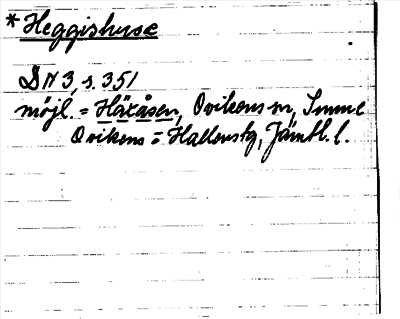 *Heggishuse
DN 3, s. 351
möjl. = Häxåsen, Ovikens sn,
Ovikens = Hallens tg, Jämtl. l.